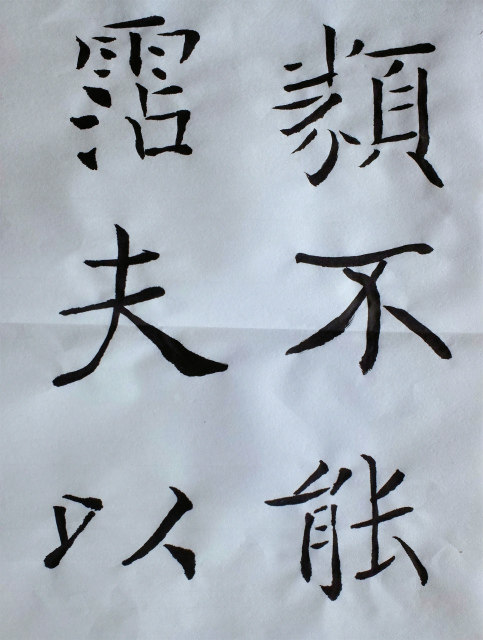 類不能
霑夫以